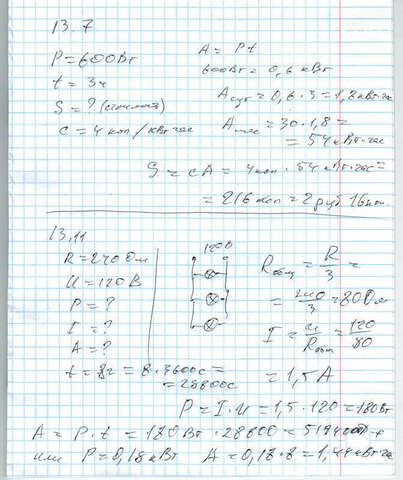 13.7
P = 600 Вт
t = 3ч
S = ? (стоимость)
c = 4 коп / кВт·час
A = Pt
600 Вт = 0,6 кВт
A сут = 0,6 · 3 = 1,8 кВт·час
A мес = 30 · 1,8 =
= 54 кВт·час
S = cA = 4 коп · 54 кВт·час =
= 216 коп = 2 руб 16 коп.
13.11
R = 240 Ом
U = 120 В
P = ?
I = ?
A = ?
t = 8ч = 8·3600с =
= 28800с
120В
R общ = R/3 =
= 240/3 = 80 Ом
I = U/R общ = 120/80
= 1,5 А
P = I·U = 1,5 · 120 = 180 Вт
A = P·t = 180 Вт · 28800 =
или P = 0,18 кВт A = 0,18·8 = 1,44 кВт·час